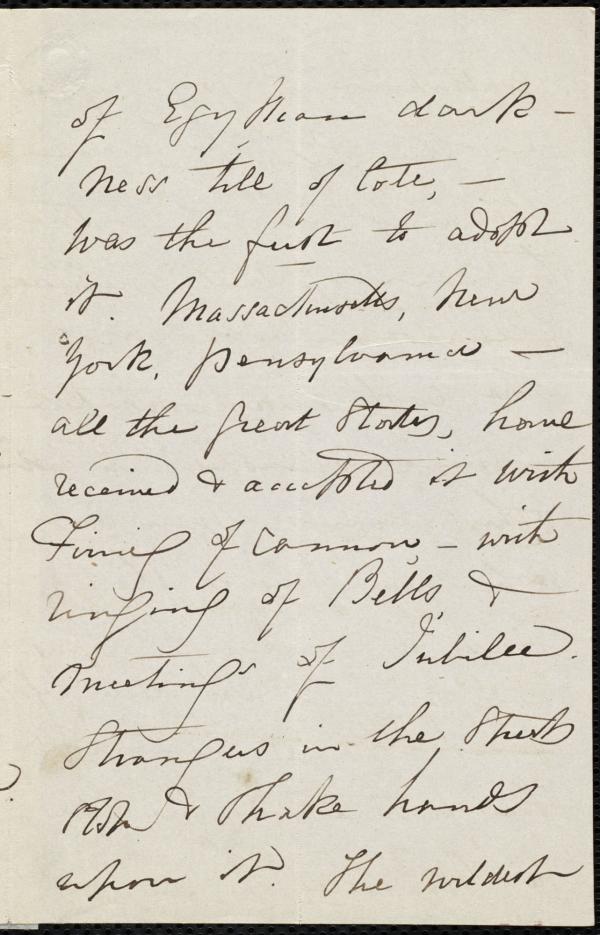 of Egyptian dark-
ness till of late, —
was the first to adopt
it. Massachusetts, New
York, Pensylvania —
all the great States, have
received & accepted it with
Firing of cannon, — with
ringing of Bells, &
meetings of Jubilee.
Strangers in the Streets
stop & Shake hands
upon it. The wildest